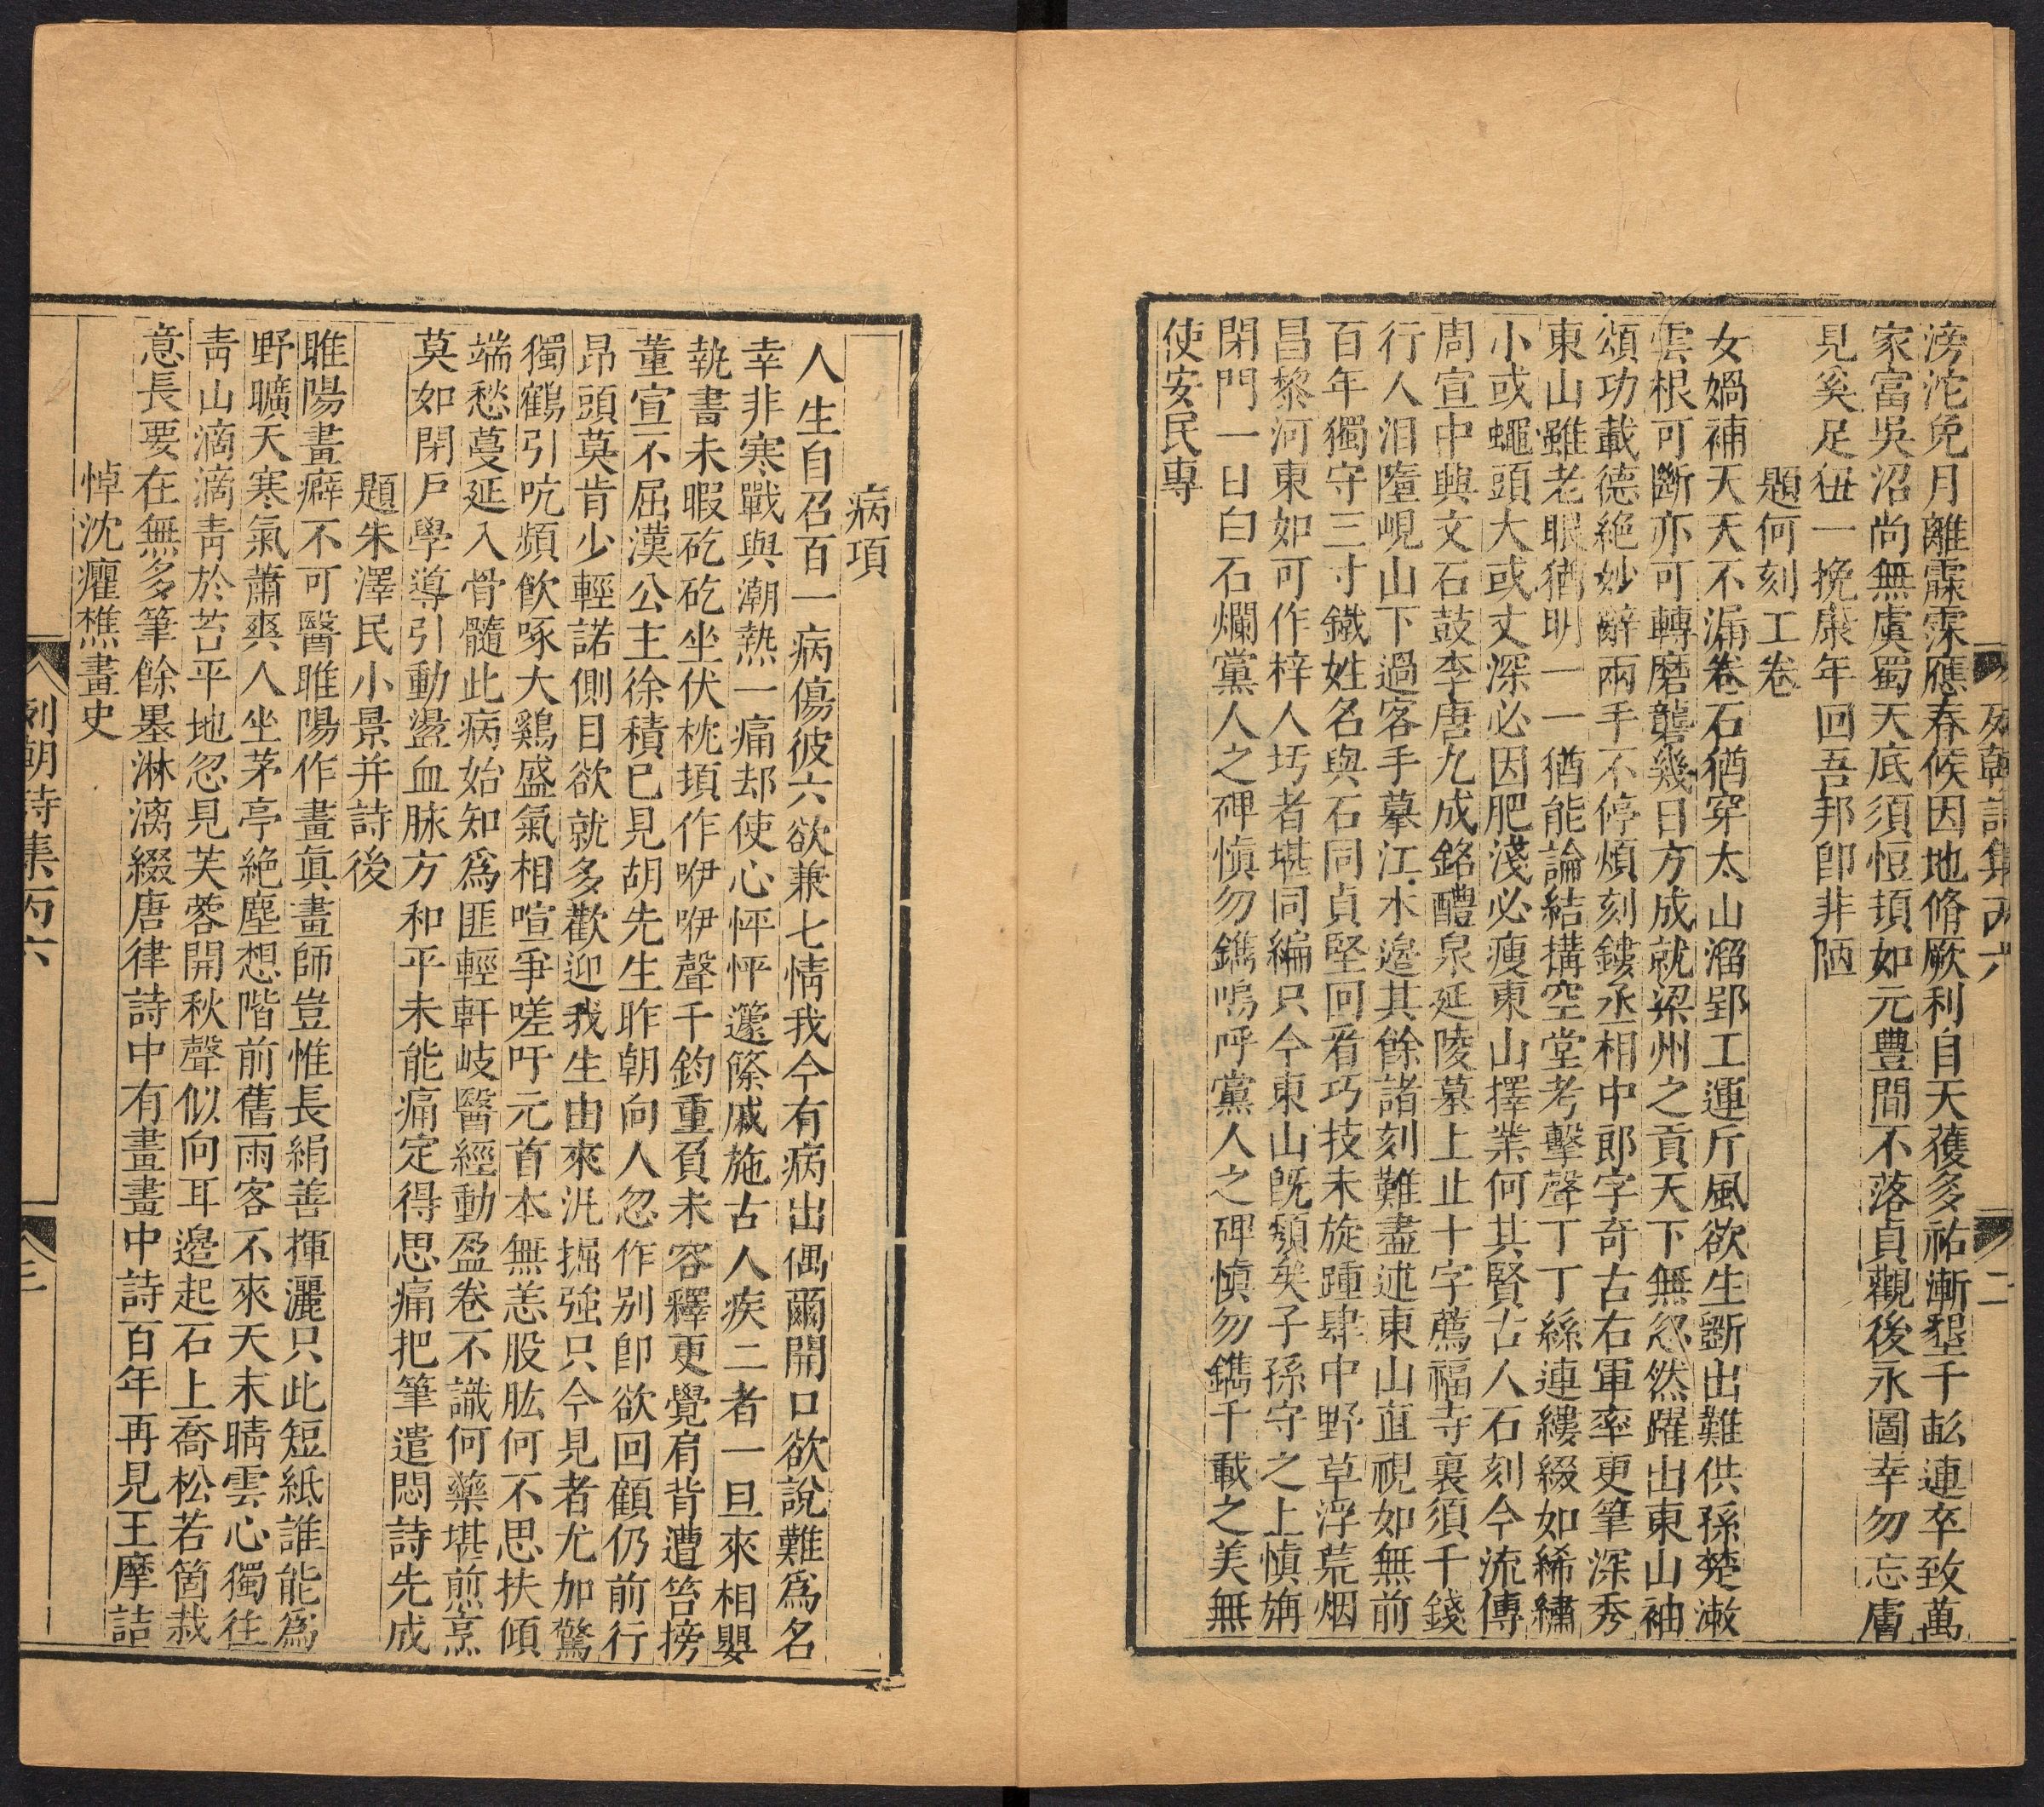 滂沱免月離霡霂應春候因地脩厥利自天獲多祐漸墾千畝連卒致萬
家富吳沼尚無虞蜀天底須恒頂如元豊間不落貞觀後永圖幸勿忘膚
見奚足狃一挽康年回吾邦卽非陋
題何刻工卷
女媧補天天不漏卷石猶穿太山溜郢工運斤風欲生斲出難供孫楚漱
雲根可斷亦可轉磨礱幾日方成就梁州之貢天下無忽然躍出東山袖
頌功載德絶妙辭兩手不停煩刻鏤丞相中郎字奇古右軍率更筆深秀
東山雖老眼猶明一一猶能論結搆空堂考擊聲丁丁絲連縷綴如絺繡
小或蠅頭大或丈深必因肥淺必瘦東山擇業何其賢古人石刻今流傳
周宣中興文石鼓李唐九成銘醴泉延陵墓上止十字薦福寺裏須千錢
行人泪墮峴山下過客手摹江水邊其餘諸刻難盡述東山直視如無前
百年獨守三寸鐵姓名與石同貞堅回看巧技未旋踵肆中野草浮荒烟
昌黎河東如可作梓人圬者堪同編只今東山旣頽矣子孫守之上愼旃
閉門一日白石爛黨人之碑愼勿鐫嗚呼黨人之碑愼勿鐫千載之美無
使安民專
列朝詩集丙六
二
病項
人生自召百一病傷彼六欲兼七情我今有病出偶爾開口欲說難爲名
幸非寒戰與潮熱一痛却使心怦怦籧篨戚施古人疾二者一旦來相嬰
執書未暇矻矻坐伏枕頊作咿咿聲千鈞重負未容釋更覺肩背遭笞搒
董宣不屈漢公主徐積已見胡先生昨朝向人忽作別卽欲回顧仍前行
昂頭莫肯少輕諾側目欲就多歡迎我生由來涗掘強只今見者尤加驚
獨鶴引吭頻飲啄大鷄盛氣相喧爭嗟吁元首本無恙股肱何不思扶傾
端愁蔓延入骨髓此病始知爲匪輕軒岐醫經動盈卷不識何藥堪煎烹
莫如閉戸學導引動盪血脉方和平未能痛定得思痛把筆遣悶詩先成
題朱澤民小景并詩後
睢陽畫癖不可醫睢陽作畫眞畫師豈惟長絹善揮灑只此短紙誰能爲
野曠天寒氣蕭爽人坐茅亭絶塵想階前舊雨客不來天末晴雲心獨往
靑山滴滴靑於苔平地忽見芙蓉開秋聲似向耳邊起石上喬松若箇栽
意長要在無多筆餘墨淋漓綴唐律詩中有畫畫中詩百年再見王摩詰
悼沈癯樵畫史
列朝詩集丙六
三